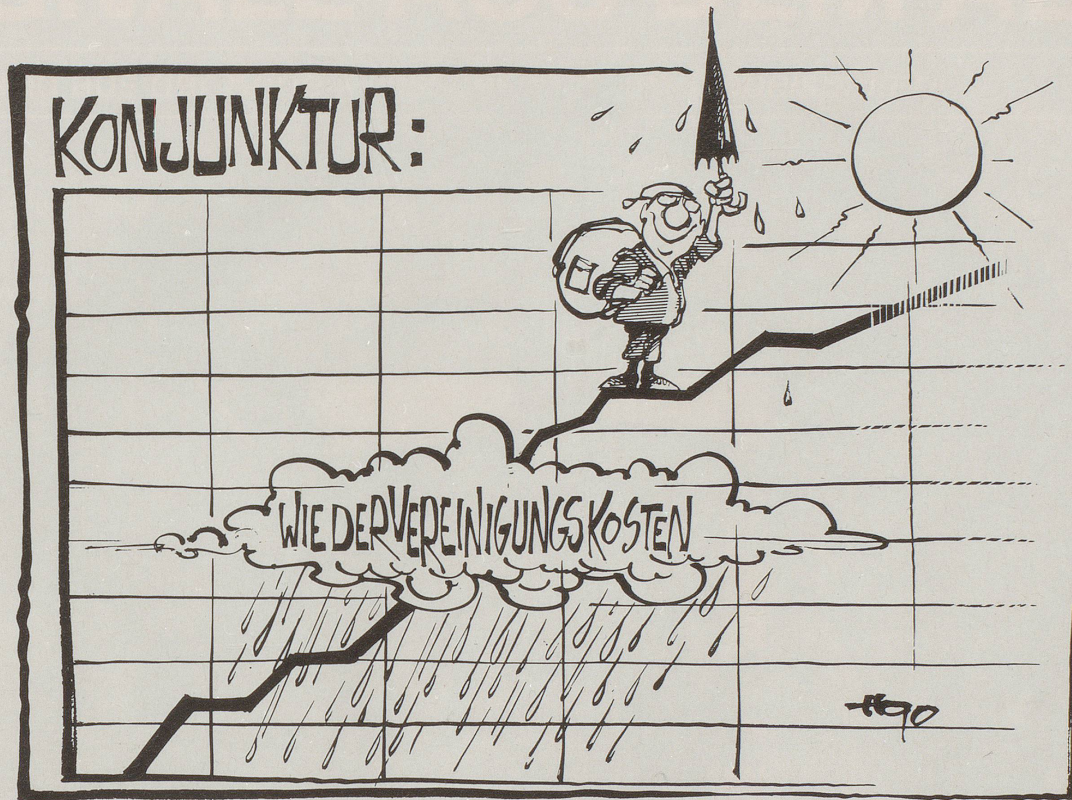 KONJUNKTUR:
WIEDERVEREINIGUNGSKOSTEN